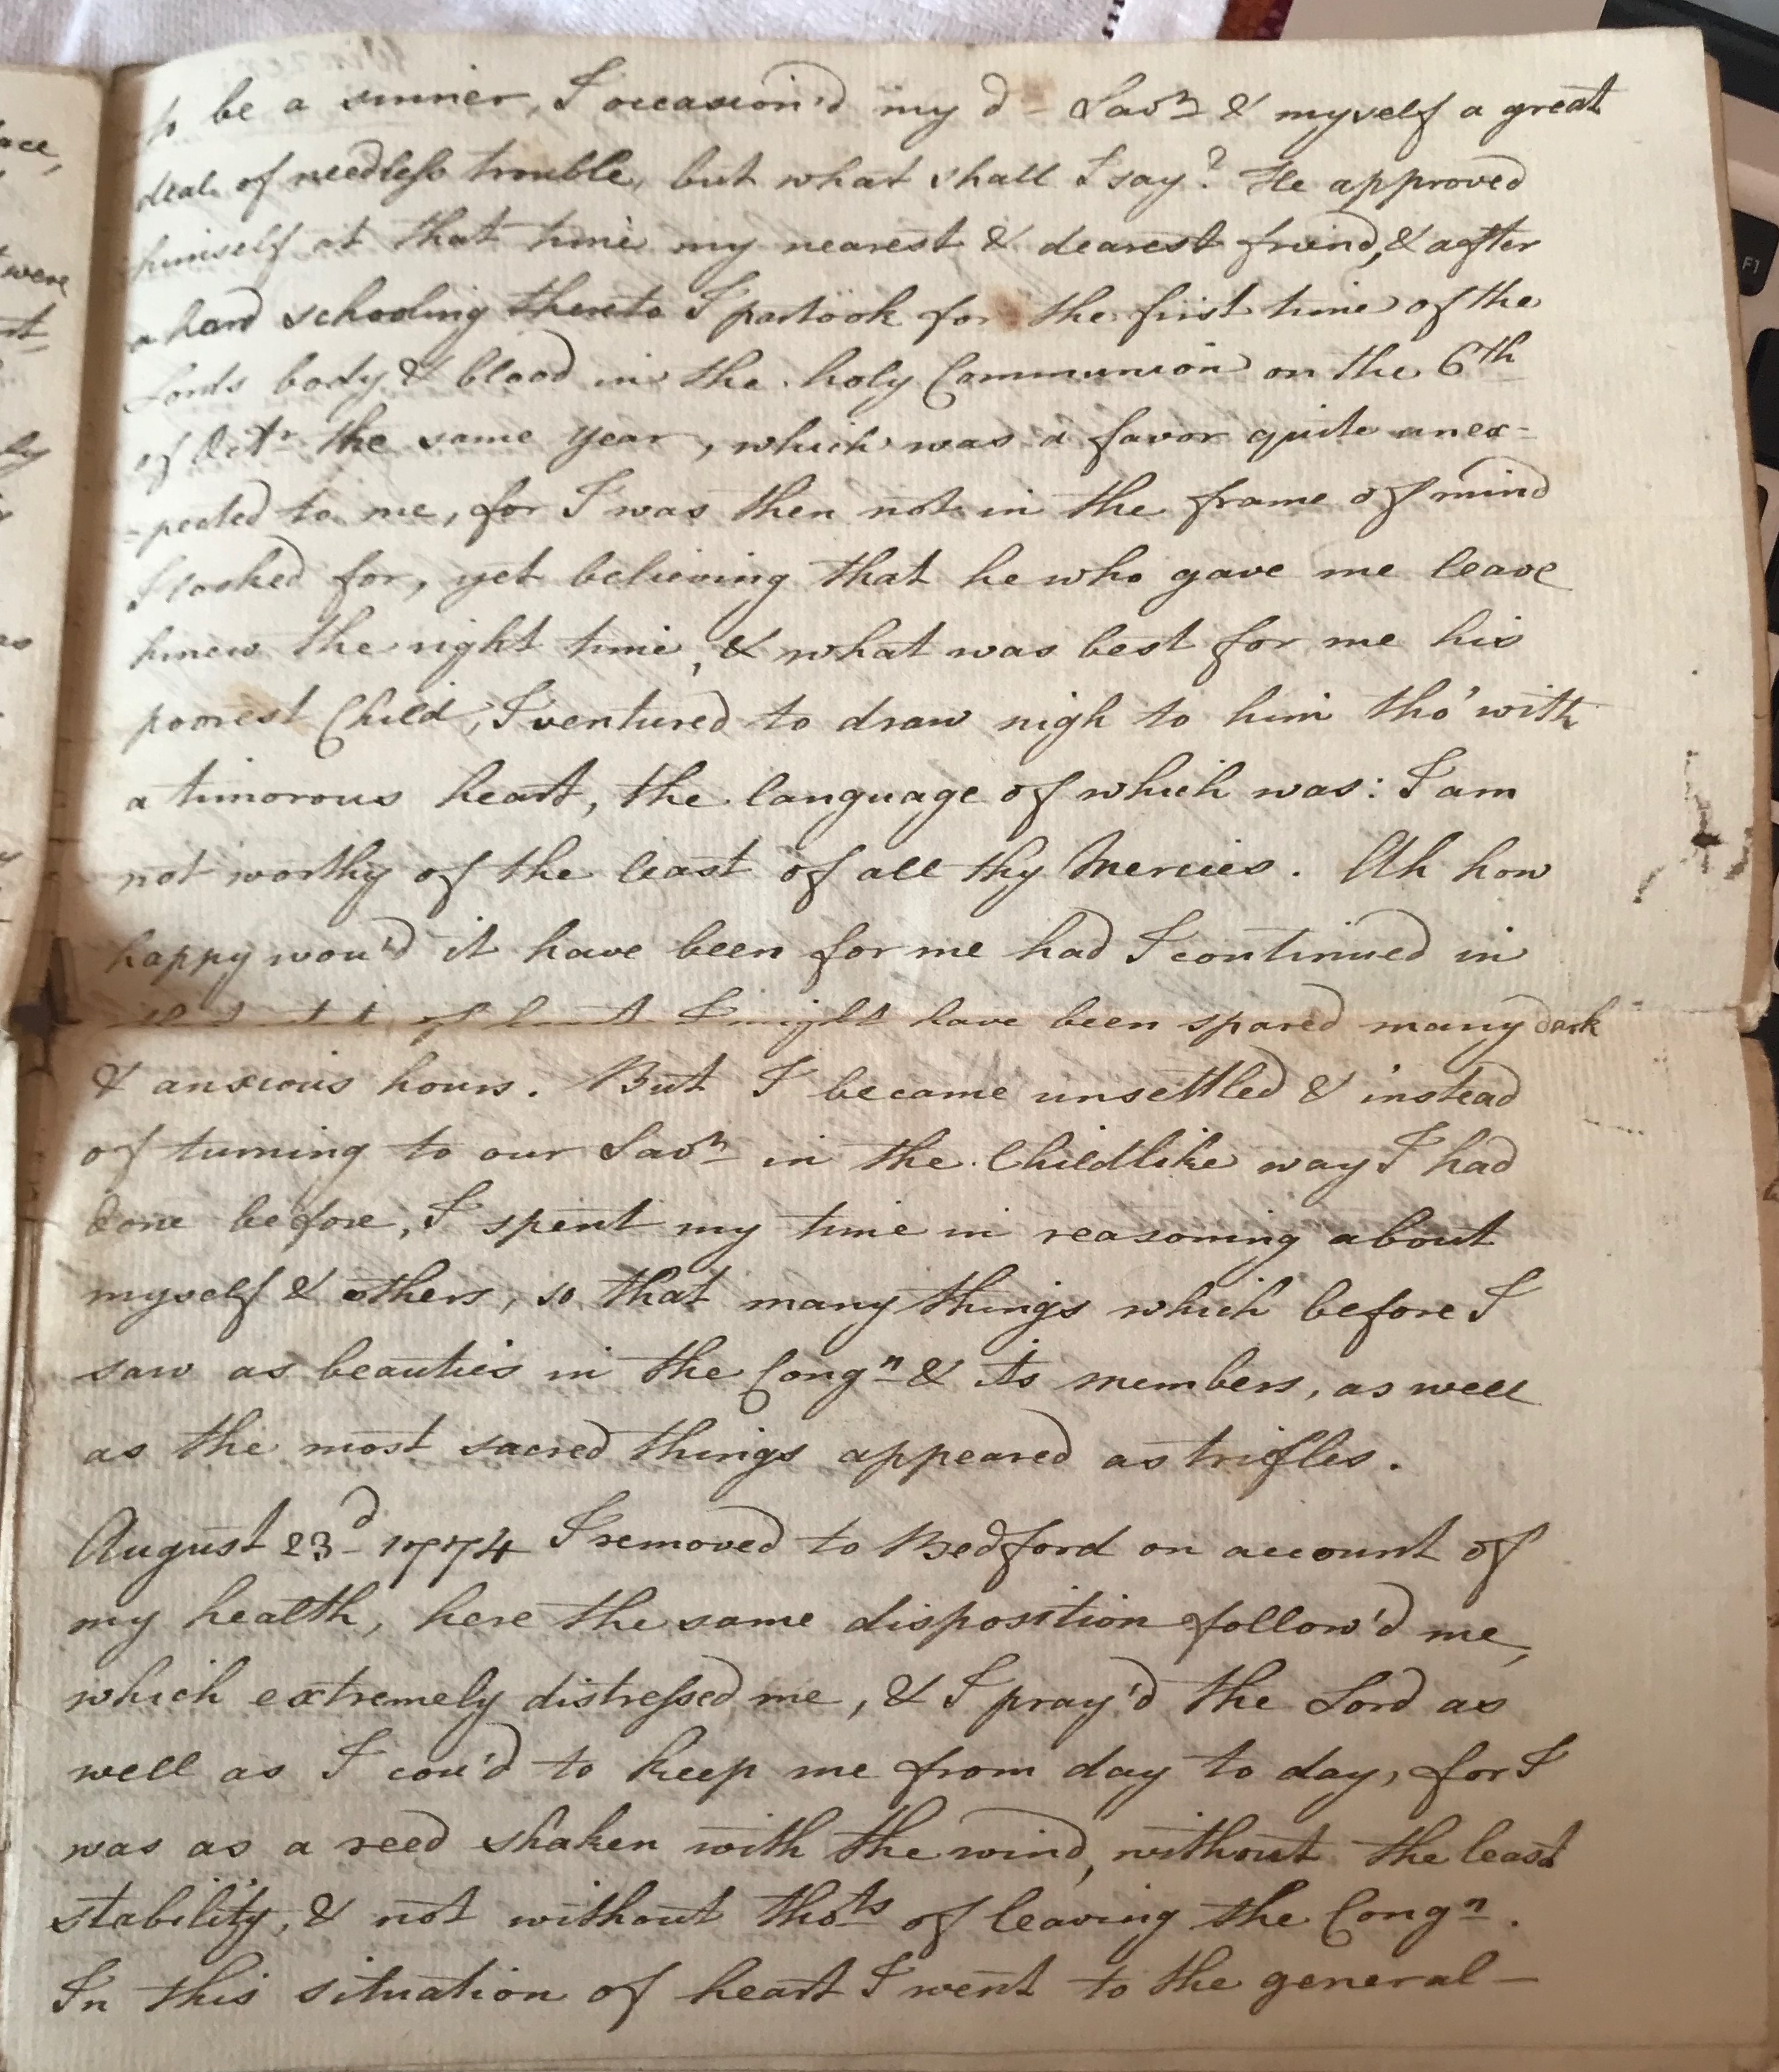 to be a sinner, I occasion'd my d– Savr & myself a great
deal of needless trouble, but what shall I say? He approved
himself at that time my nearest & dearest friend, & after
a hard schooling thereto I partook for the first time of the
Lords body & blood in the holy Communion on the 6th
of Octr the same year, which was a favor quite unex-
-pected to me, for I was then not in the frame of mind
I looked for, yet believing that he who gave me leave
knew the right time, & what was best for me his
poorest Child, I ventured to draw nigh to him tho' with
a timorous heart, the language of which was: I am
not worthy of the least of all thy Mercies. Ah how
happy wou'd it have been for me had I continued in
of heart I might have been spared many dark
& anxious hours. But I became unsettled & instead
of turning to our Savr in the Childlike way I had
done before, I spent my time in reasoning about
myself & others, so that many things which before I
saw as beauties in the Congn & its members, as well
as the most sacred things appeared as trifles.
August 23d 1774 I removed to Bedford on account of
my health, here the same disposition follow'd me,
which extremely distressed me, & I pray'd the Lord as
well as I cou'd to keep me from day to day, for I
was as a reed shaken with the wind, without the least
stability, & not without thots of leaving the Congn.
In this situation of heart I went to the general–